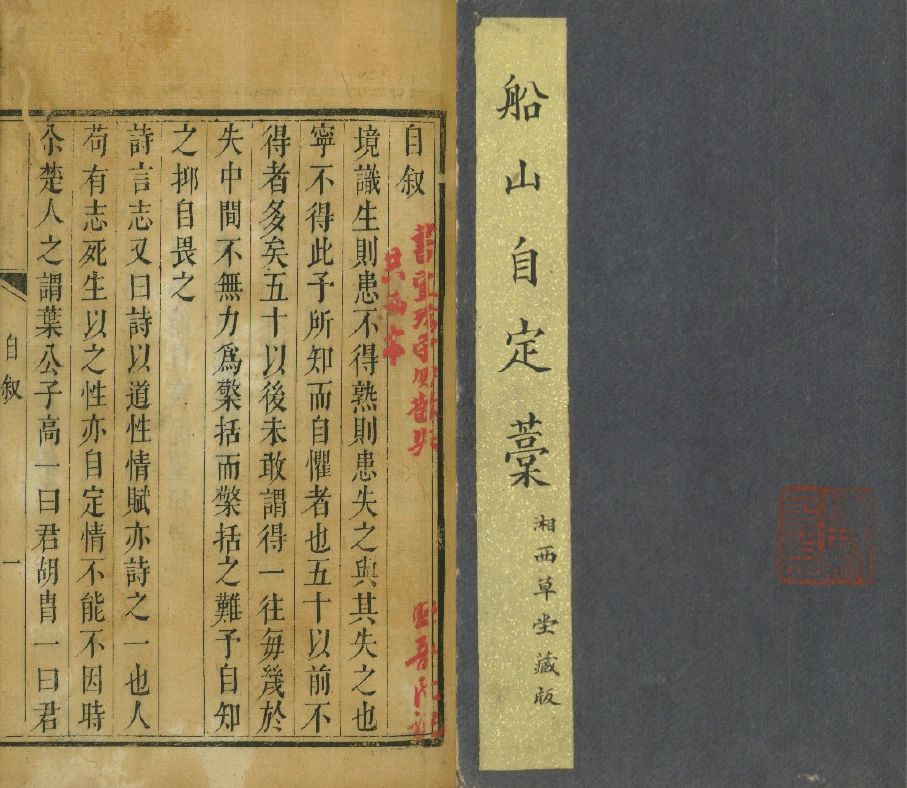 船山自定藁
湘西草堂藏版
自叙
境識生則患不得熟則患失之與其失之也
寧不得此予所知而自懼者也五十以前不
得者多矣五十以後未敢謂得一往每幾於
失中間不無力爲檠括而檠括之難予自知
之抑自畏之
詩言志又曰詩以道性情賦亦詩之一也人
苟有志死生以之性亦自定情不能不因時
尒楚人之謂葉公子高一曰君胡胄一曰君
自叙
一